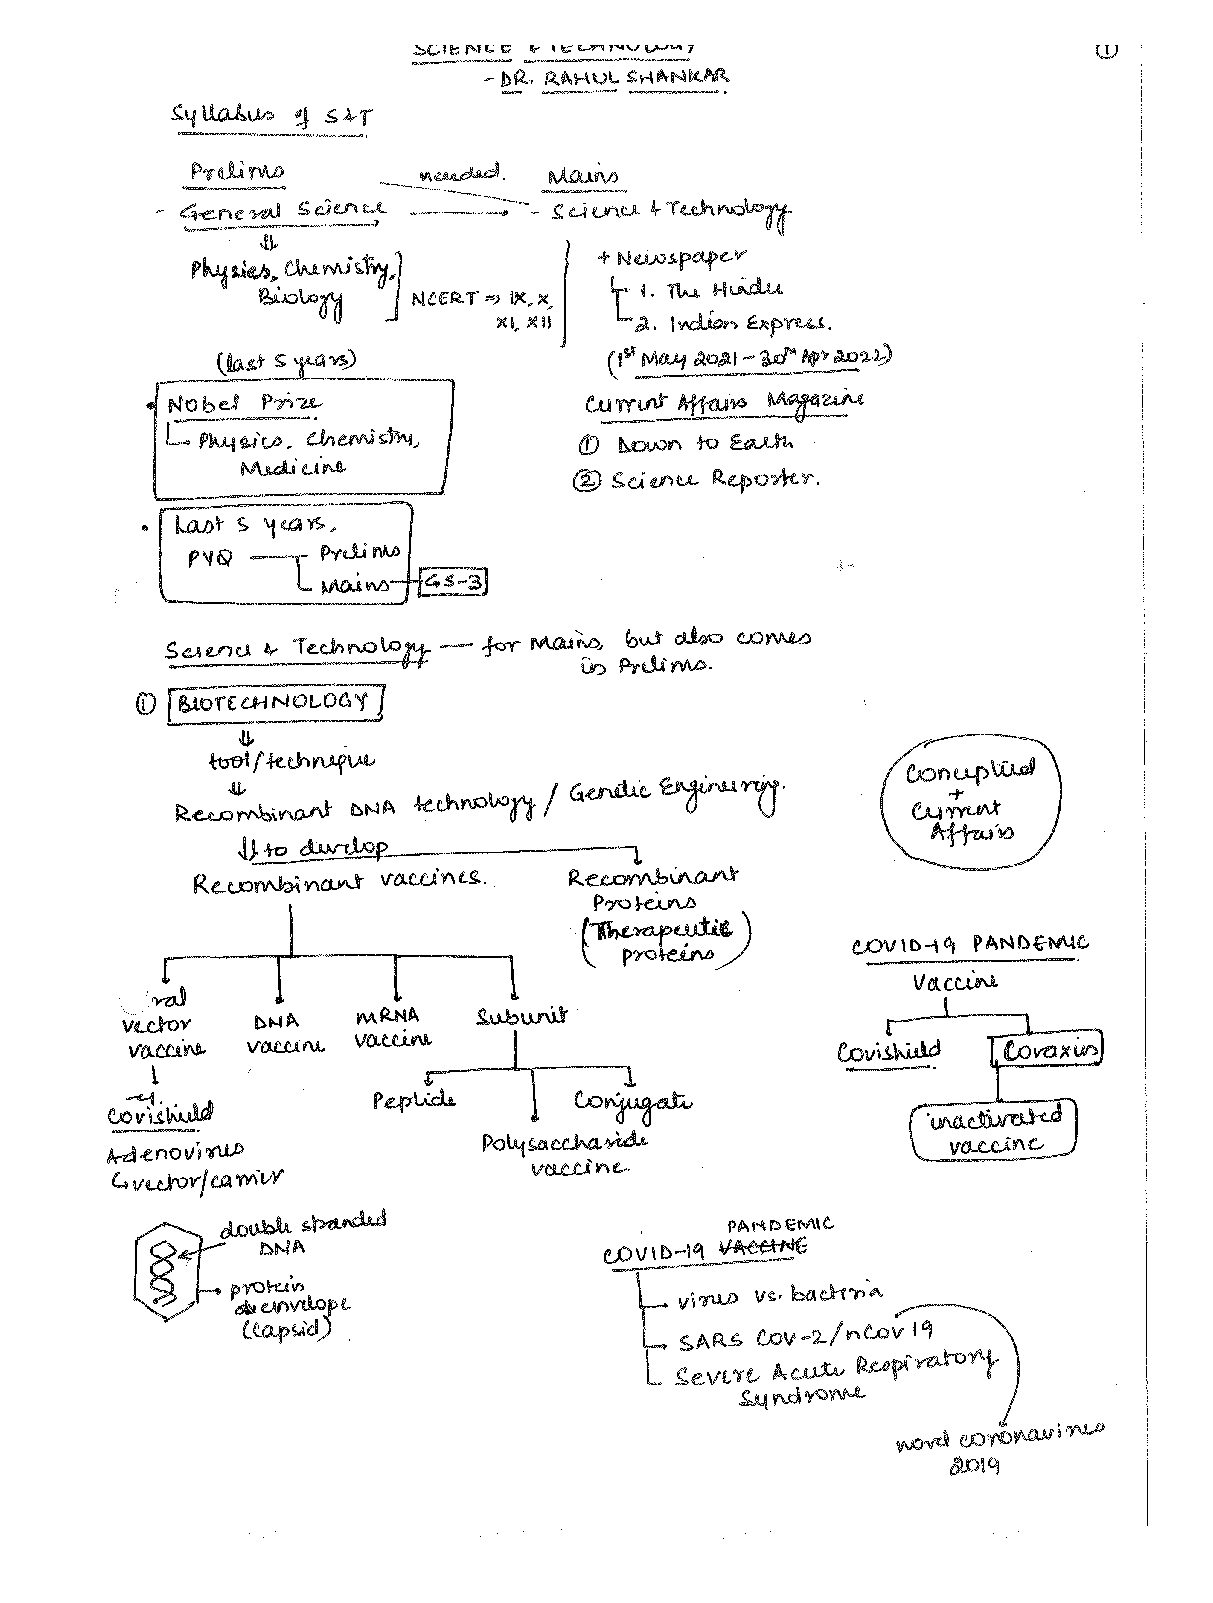 SCIENCE & TECHNOLOGY
①
- DR. RAHUL SHANKAR
Syllabus of S&T
Prelims
needed.
Mains
- General Science
- Science & Technology
Physics, Chemistry,
Biology
NCERT ⇒ IX, X,
XI, XII
+ Newspaper
1. The Hindu
2. Indian Express.
(1st May 2021 - 30th Apr 2022)
(last 5 years)
• Nobel Prize
Physics, Chemistry,
Medicine
Current Affairs Magazine
① Down to Earth
② Science Reporter.
• Last 5 years.
PYQ
Prelims
Mains
GS-3
Science & Technology — for Mains but also comes
in Prelims.
① BIOTECHNOLOGY
tool/technique
Recombinant DNA technology / Genetic Engineering.
Conceptual
+
Current
Affairs
to develop
Recombinant vaccines.
Recombinant
Proteins
(Therapeutic
proteins)
COVID-19 PANDEMIC
Vaccine
Covishield
Covaxin
inactivated
vaccine
ral
vector
vaccine
DNA
vaccine
mRNA
vaccine
Subunit
Peptide
Conjugate
Polysaccharide
vaccine
Covishield
Adenovirus
↳ vector/carrier
double stranded
DNA
protein
envelope
(Capsid)
PANDEMIC
COVID-19 VACCINE
virus vs. bacteria
SARS COV-2/nCov 19
Severe Acute Respiratory
Syndrome
novel coronavirus
2019